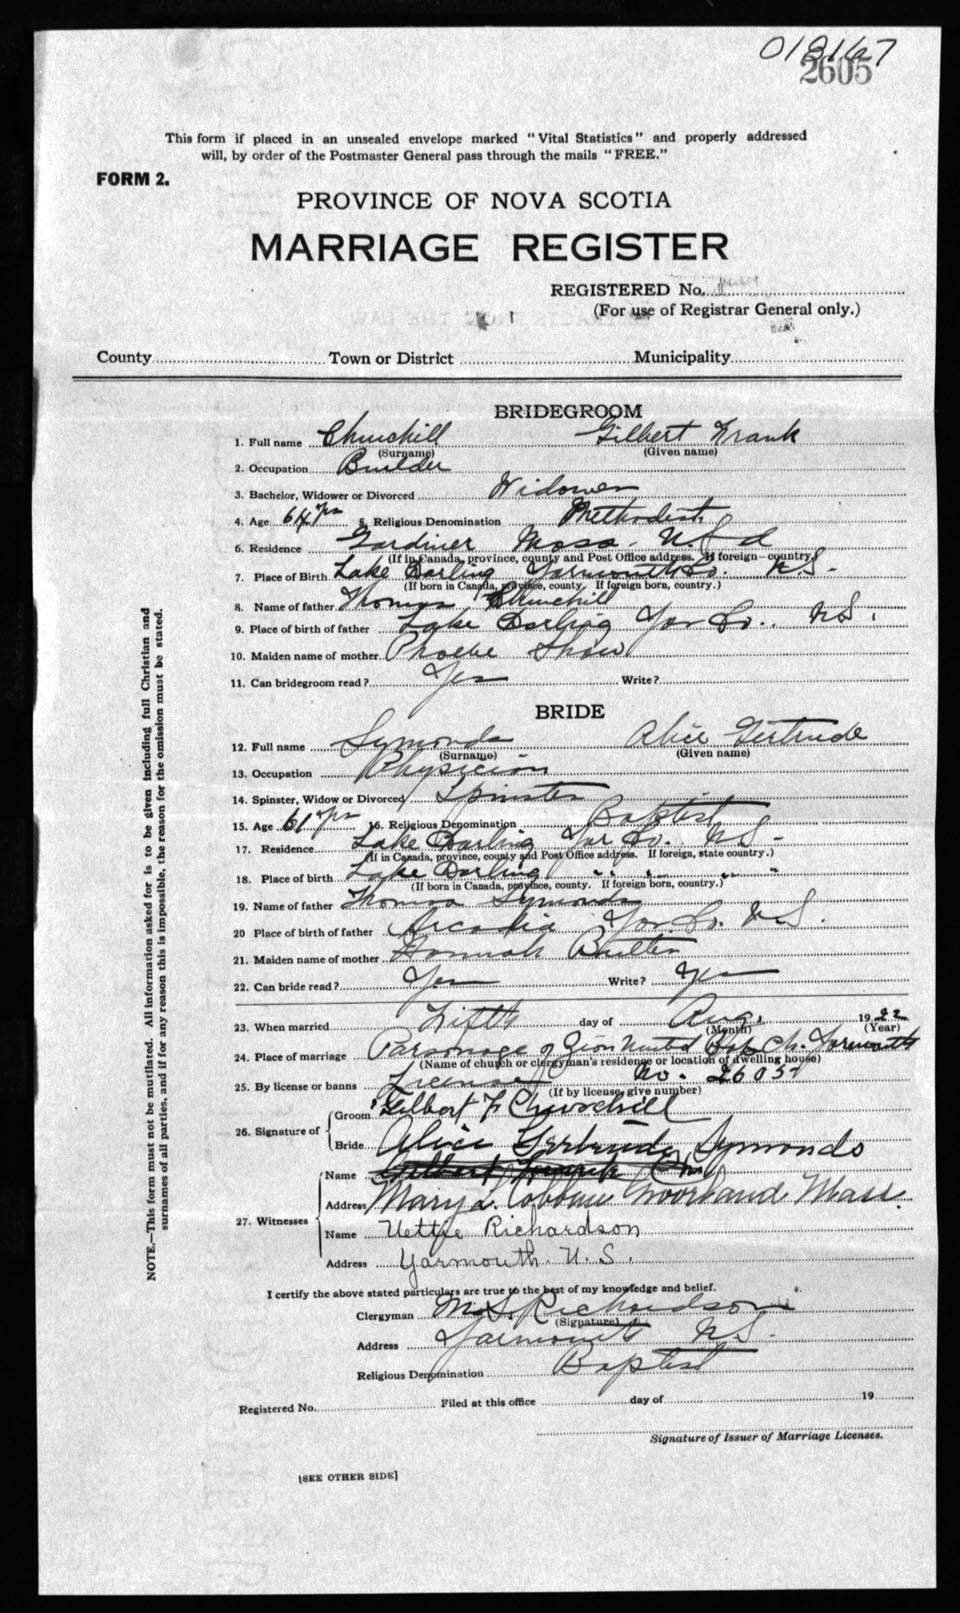 013167
2605
This form if placed in an unsealed envelope marked "Vital Statistics" and properly addressed
will, by order of the Postmaster General pass through the mails "FREE."
FORM 2.
PROVINCE OF NOVA SCOTIA
MARRIAGE REGISTER
REGISTERED No.
(For use of Registrar General only.)
County Town or District Municipality
BRIDEGROOM
1. Full name Churchill Gilbert Frank
(Surname) (Given name)
2. Occupation Builder
3. Bachelor, Widower or Divorced Widower
4. Age 64 yrs 5. Religious Denomination Methodist
6. Residence Gardiner Mass. U S A
(If in Canada, province, county and Post Office address. If foreign—country)
7. Place of Birth Lake Darling Yarmouth Co. N.S.
(If born in Canada, province, county. If foreign born, country.)
8. Name of father Thomas Churchill
9. Place of birth of father Lake Darling Yar Co. N.S.
10. Maiden name of mother Phoebe Shaw
11. Can bridegroom read? Yes Write?
BRIDE
12. Full name Symonds Alice Gertrude
(Surname) (Given name)
13. Occupation Physician
14. Spinster, Widow or Divorced Spinster
15. Age 61 yrs 16. Religious Denomination Baptist
17. Residence Lake Darling Yar Co. N.S.
(If in Canada, province, county and Post Office address. If foreign, state country.)
18. Place of birth Lake Darling " " " "
(If born in Canada, province, county. If foreign born, country.)
19. Name of father Thomas Symonds
20 Place of birth of father Arcadia Yar Co. N.S.
21. Maiden name of mother Hannah Butler
22. Can bride read? Yes Write? Yes
23. When married Fifth day of Aug. 1922
(Month) (Year)
24. Place of marriage Parsonage of Zion United Bap Ch. Yarmouth
(Name of church or clergyman's residence or location of dwelling house)
25. By license or banns License No. 2605
(If by license, give number)
26. Signature of
Groom Gilbert F Churchill
Bride Alice Gertrude Symonds
27. Witnesses
Name Gilbert Frank Chu
Address Mary L. Mass.
Name Nettie Richardson
Address Yarmouth. N. S.
I certify the above stated particulars are true to the best of my knowledge and belief.
Clergyman M. S. Richardson
(Signature)
Address Yarmouth N.S.
Religious Denomination Baptist
Registered No. Filed at this office day of 19
Signature of Issuer of Marriage Licenses.
[SEE OTHER SIDE]
NOTE.—This form must not be mutilated. All information asked for is to be given including full Christian and
surnames of all parties, and if for any reason this is impossible, the reason for the omission must be stated.